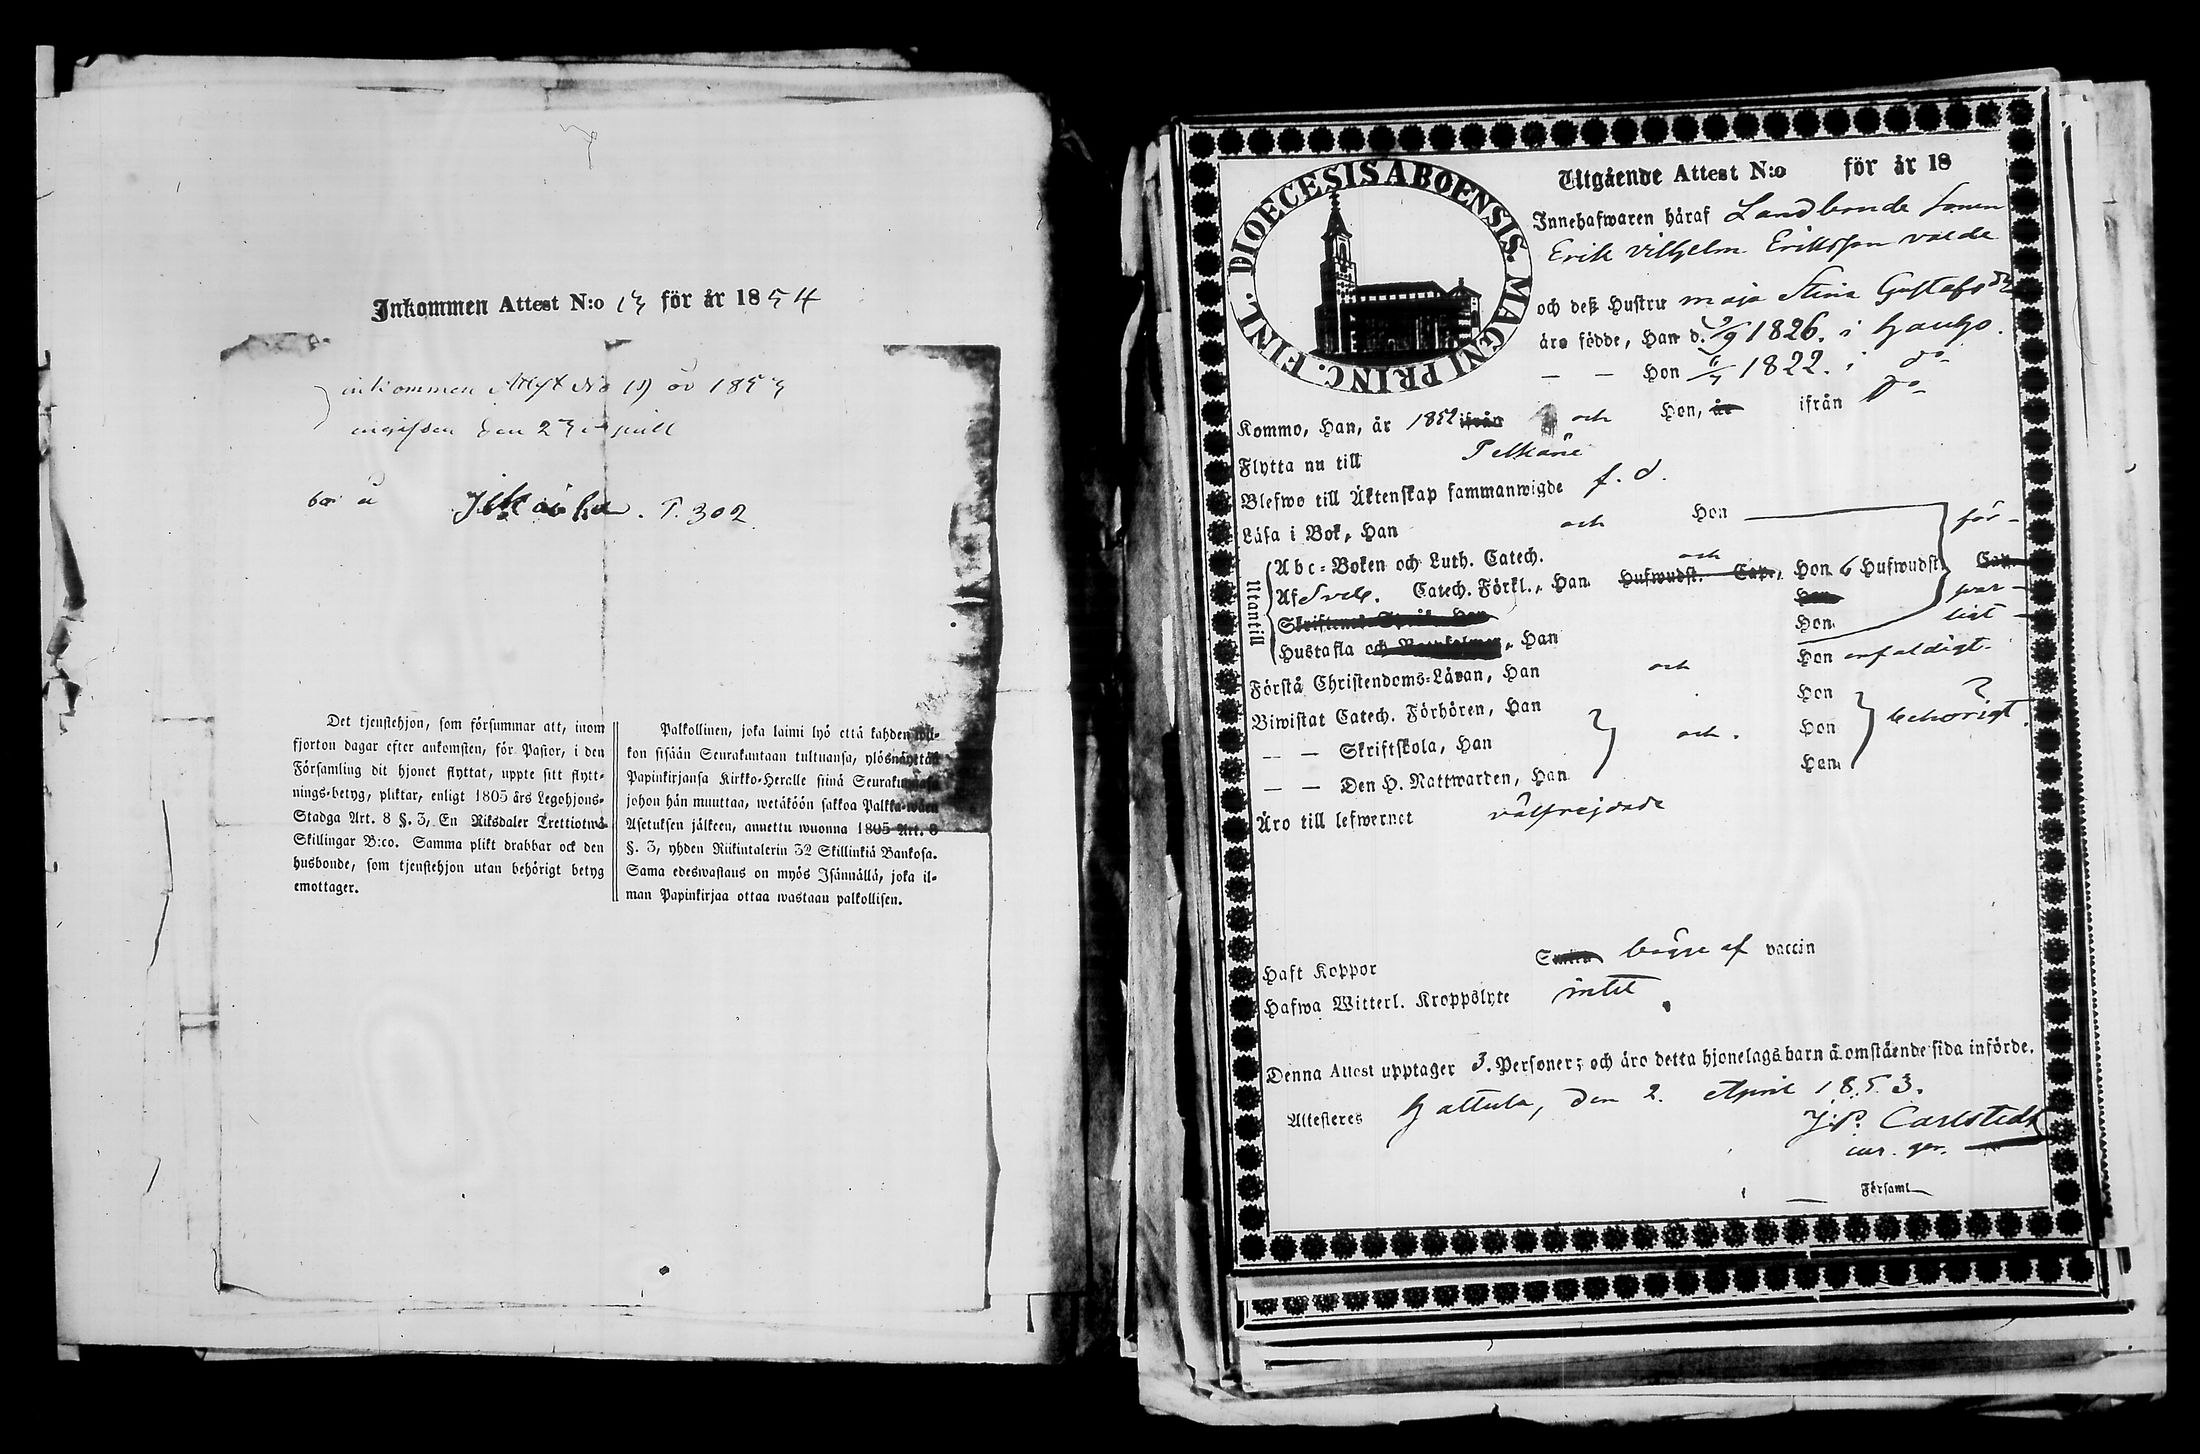 Inkommen Attest N:o 13 för år 1854
inkommen Attest No 19 år 1853
den 23 april
bor å . P. 302.
Det tjenstehjon, som försummar att, inom
fjorton dagar efter ankomsten, för Pastor, i den
Församling dit hjonet flyttat, uppte sitt flytt-
nings-betyg, pliktar, enligt 1805 års Legohjons-
Stadga Art. 8 §. 3, En Riksdaler Trettiotwå
Skillingar B:co. Samma plikt drabbar ock den
husbonde, som tjenstehjon utan behörigt betyg
emottager.
Palkollinen, joka laimi lyö että kahden wii-
kon sisään Seurakuntaan tultuansa, ylösnäyttää
Papinkirjansa Kirkko-Heralle siinä Seurakunnasa
johon hän muuttaa, wetäköön sakkoa Palkka-wäen
Asetuksen jälkeen, annettu wuonna 1805 Art. 8
§. 3, yhden Riikintalerin 32 Skillinkiä Bankosa.
Sama edeswastaus on myös Isännällä, joka il-
man Papinkirjaa ottaa wastaan palkollisen.
DIOECESIS ABOENSIS. MAGNI PRINC. FINL.
Utgående Attest N:o för år 18
Innehafwaren häraf Landbonde sonen
Erik Vilhelm Eriksson
och deß Hustru Maja Stina Gustafsdr
äro födde, Han d. /9 1826. i Hauho.
— — Hon 1822. i do
Kommo, Han, år 1852 ifrån och Hon, år ifrån do
Flytta nu till Pelkäne
Blefwo till Äktenskap sammanwigde f. d.
Läsa i Bok, Han och Hon för-
Utantill
Abc-Boken och Luth. Catech. och
Af Sveb. Catech. Förkl., Han Hufwudst. Cap., Hon 6 Hufwudst. Cap. svar-
Hon ligt
Hustafla och , Han Hon
Förstå Christendoms-Läran, Han och Hon enfaldigt.
Biwistat Catech. Förhören, Han Hon
— — Skriftskola, Han och Hon behörigt.
— — Den H. Nattwarden, Han Hon
Äro till lefwernet välfrejdade
Haft Koppor begge af vaccin
Hafwa Witterl. Kroppslyte intet
Denna Attest upptager 3. Personer; och äro detta hjonelags barn å omstående sida införde.
Attesteres Hattula, den 2. April 1853.
J. P. Carlstedt
Församl.